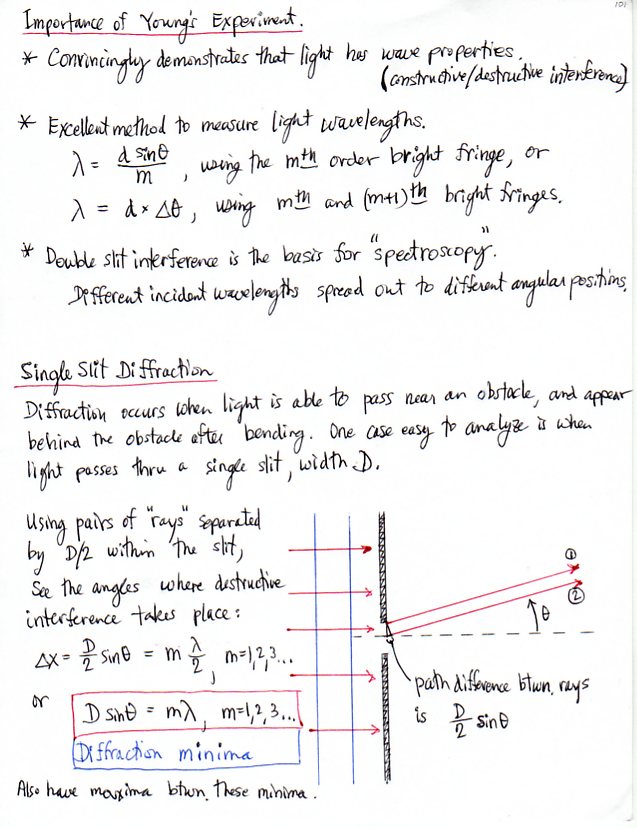 101
Importance of Young's Experiment.
* Convincingly demonstrates that light has wave properties.
(constructive/destructive interference)
* Excellent method to measure light wavelengths.
λ = d sinθ / m , using the mth order bright fringe, or
λ = d × Δθ , using mth and (m+1)th bright fringes.
* Double slit interference is the basis for "spectroscopy".
Different incident wavelengths spread out to different angular positions.
Single Slit Diffraction
Diffraction occurs when light is able to pass near an obstacle, and appear
behind the obstacle after bending. One case easy to analyze is when
light passes thru a single slit, width D.
Using pairs of "rays" separated
by D/2 within the slit,
See the angles where destructive
interference takes place:
Δx = D/2 sinθ = m λ/2 , m=1,2,3...
or
D sinθ = mλ, m=1,2,3...
Diffraction minima
Also have maxima btwn. these minima.
①
②
θ
path difference btwn. rays
is D/2 sinθ